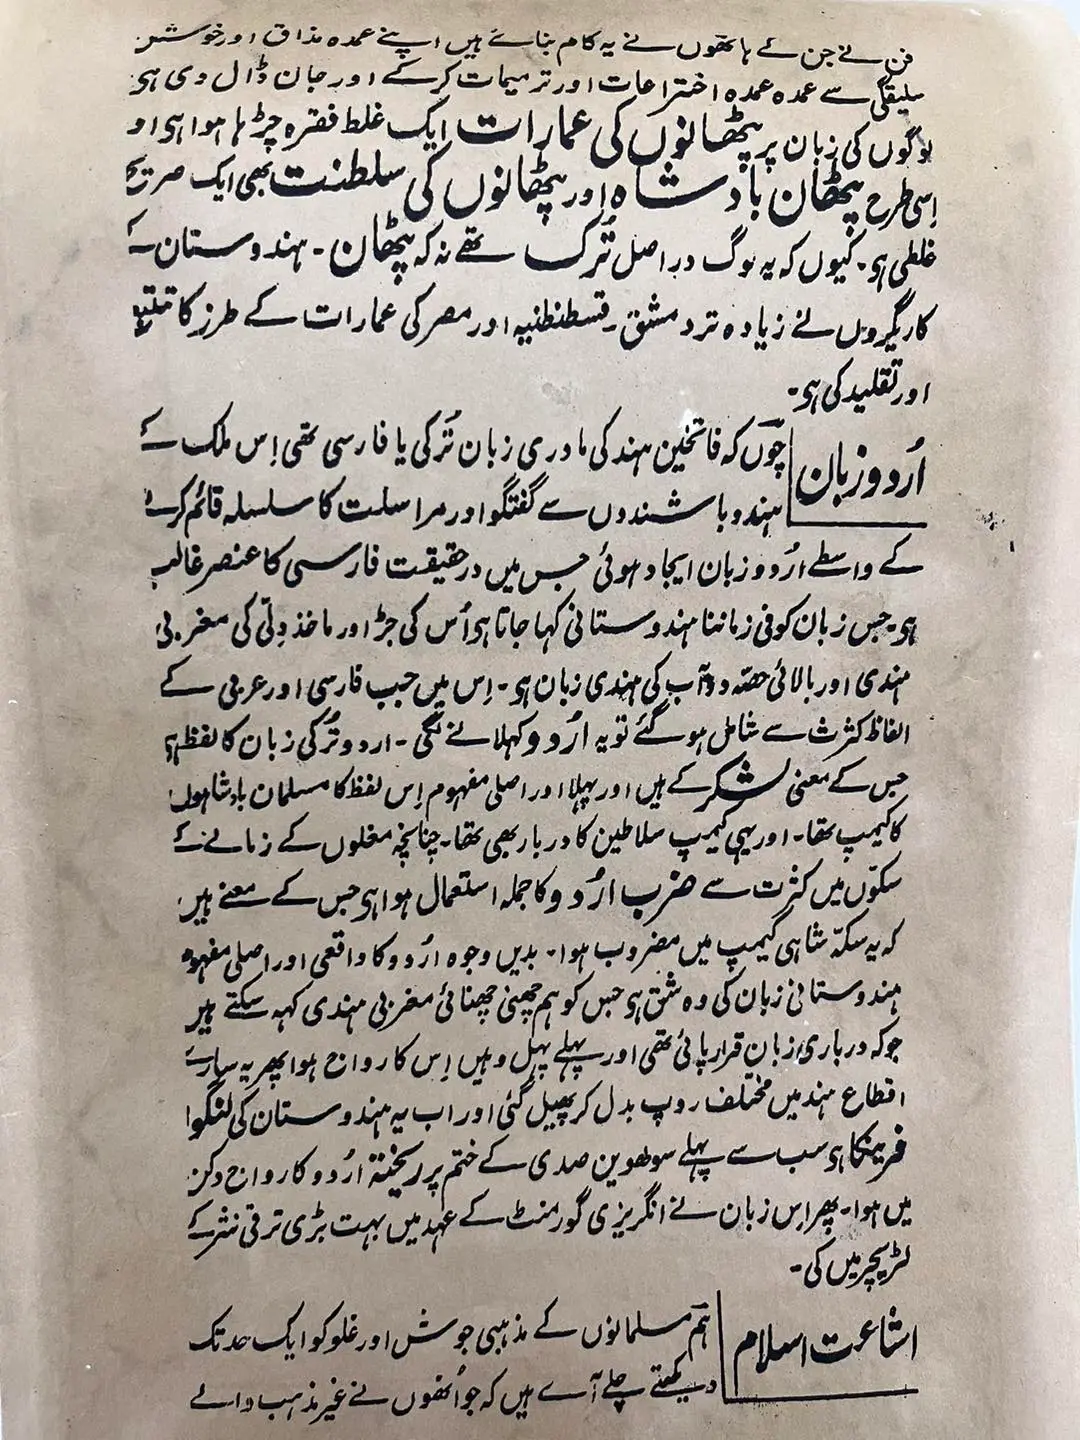 فن نے جن کے ہاتھوں نے یہ کام بنائے ہیں اپنے عمدہ مذاق اور خوش
سلیقگی سے عمدہ عمدہ اختراعات اور ترمیمات کرکے اور جان ڈال دی ہی
لوگوں کی زبان پر پٹھانوں کی عمارات ایک غلط فقرہ چڑہا ہوا ہی او
اِسی طرح پٹھان بادشاہ اور پٹھانوں کی سلطنت بھی ایک صریح
غلطی ہی۔ کیوں کہ یہ لوگ دراصل تُرک تھے نہ کہ پٹھان۔ ہندوستان کے
کاریگروں نے زیادہ تر دمشق۔ قسطنطنیہ اور مصر کی عمارات کے طرز کا تتبع
اور تقلید کی ہی۔
اُردو زبان
چوں کہ فاتحین ہند کی مادری زبان تُرکی یا فارسی تھی اِس ملک کے
ہندو باشندوں سے گفتگو اور مراسلت کا سلسلہ قائم کرنے
کے واسطے اُردو زبان ایجاد ہوئی جس میں درحقیقت فارسی کا عنصر غالب
ہی۔ جس زبان کو فی زماننا ہندوستانی کہا جاتا ہی اُس کی جڑ اور ماخذ دِلّی کی مغربی
ہندی اور بالائی حصّہ دوآب کی ہندی زبان ہی۔ اِس میں جب فارسی اور عربی کے
الفاظ کثرت سے شامل ہو گئے تو یہ اُردو کہلانے لگی۔ اردو تُرکی زبان کا لفظ ہی
جس کے معنی لشکر کے ہیں اور پہلا اور اصلی مفہوم اِس لفظ کا مسلمان بادشاہوں
کا کیمپ تھا۔ اور یہی کیمپ سلاطین کا دربار بھی تھا۔ چنانچہ مغلوں کے زمانے کے
سکوّں میں کثرت سے ضرب اُردو کا جملہ استعمال ہوا ہی جس کے معنے ہیں
کہ یہ سکہّ شاہی کیمپ میں مضروب ہوا۔ بدیں وجوہ اُردو کا واقعی اور اصلی مفہوم
ہندوستانی زبان کی وہ شق ہی جس کو ہم چھنی چھنائی مغربی ہندی کہہ سکتے ہیں
جو کہ درباری زبان قرار پائی تھی اور پہلے پہل وہیں اِس کا رواج ہوا پھر یہ سارے
اقطاع ہند میں مختلف روپ بدل کر پھیل گئی اور اب یہ ہندوستان کی لنگوا
فرینکا ہی سب سے پہلے سولھوین صدی کے ختم پر ریختۃ اُردو کا رواج دکن
میں ہوا۔ پھر اِس زبان نے انگریزی گورمنٹ کے عہد میں بہت بڑی ترقی نثر کے
لٹریچر میں کی۔
اشاعت اسلام
ہم مسلمانوں کے مذہبی جوش اور غلو کو ایک حد تک
دیکھتے چلے آے ہیں کہ جو اُنھوں نے غیر مذہب والے